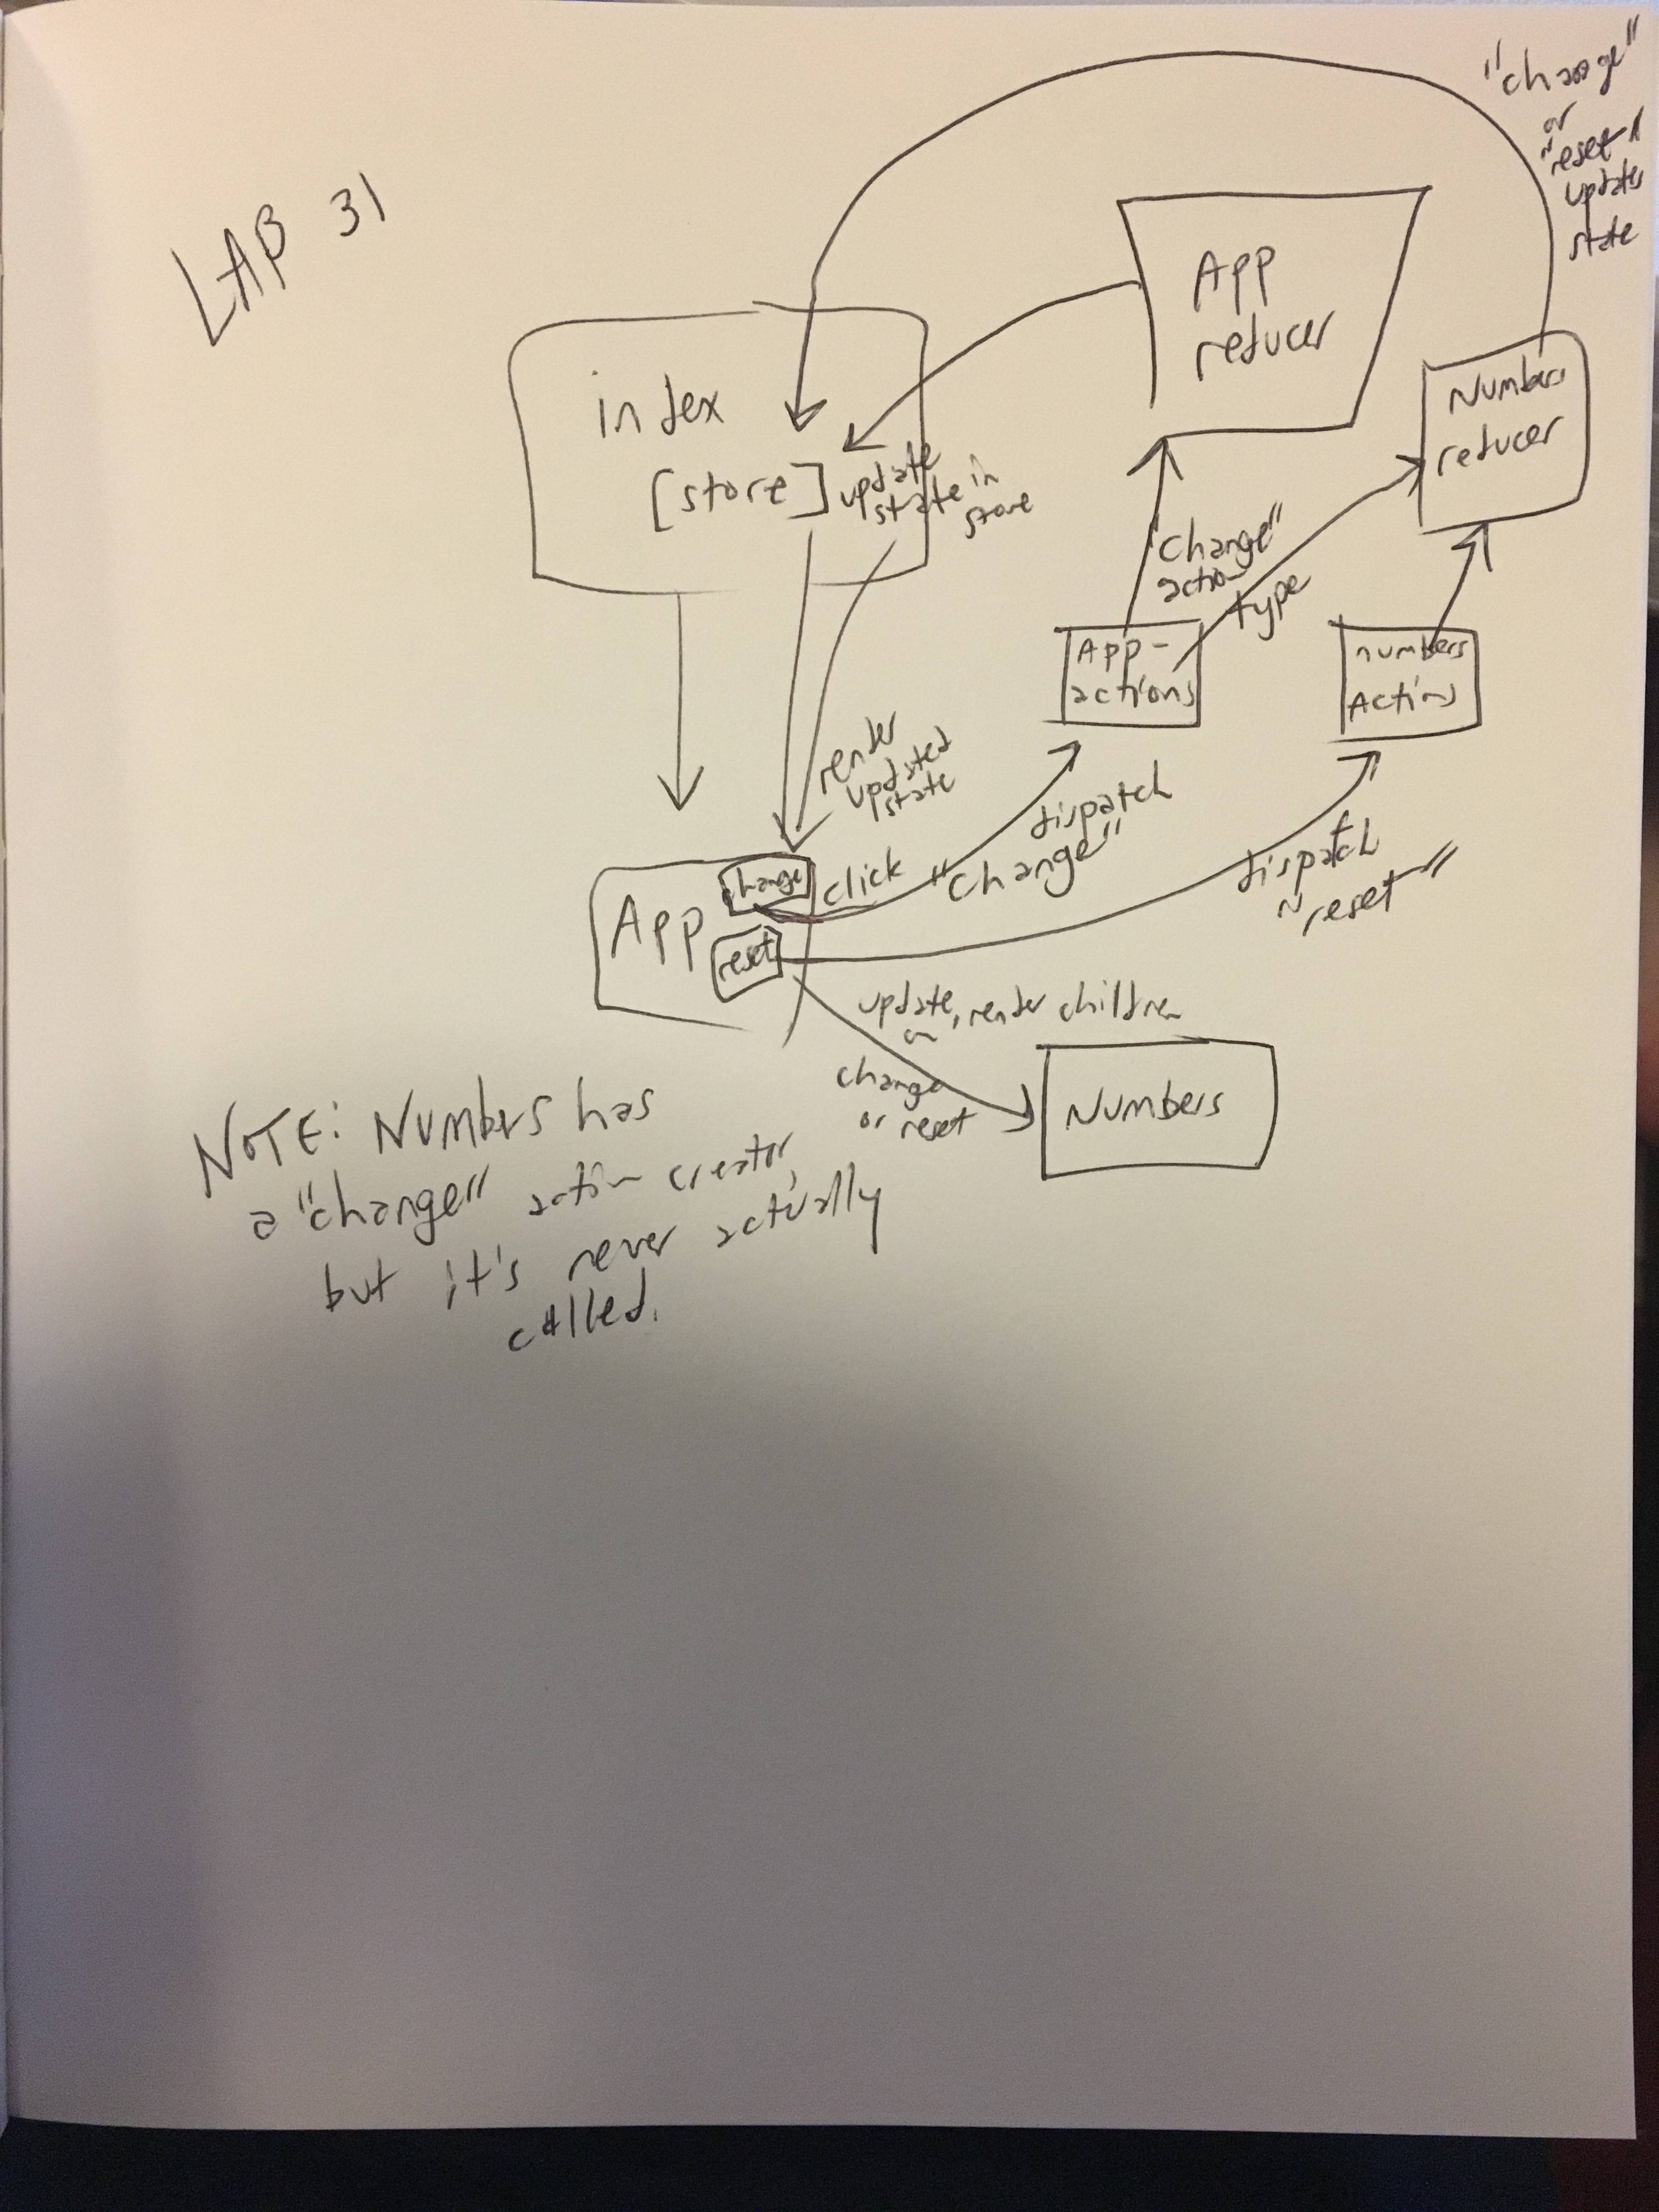 LAB 31
"change"
or
"reset"
updates
state
App
reducer
Numbers
reducer
index
[store]
update
state in
store
"change"
action
type
App-
actions
numbers
Actions
render
updated
state
dispatch
"change"
click
dispatch
"reset"
App
change
reset
update, render children
on
change
or reset
Numbers
NOTE: Numbers has
a "change" action creator,
but it's never actually
called.